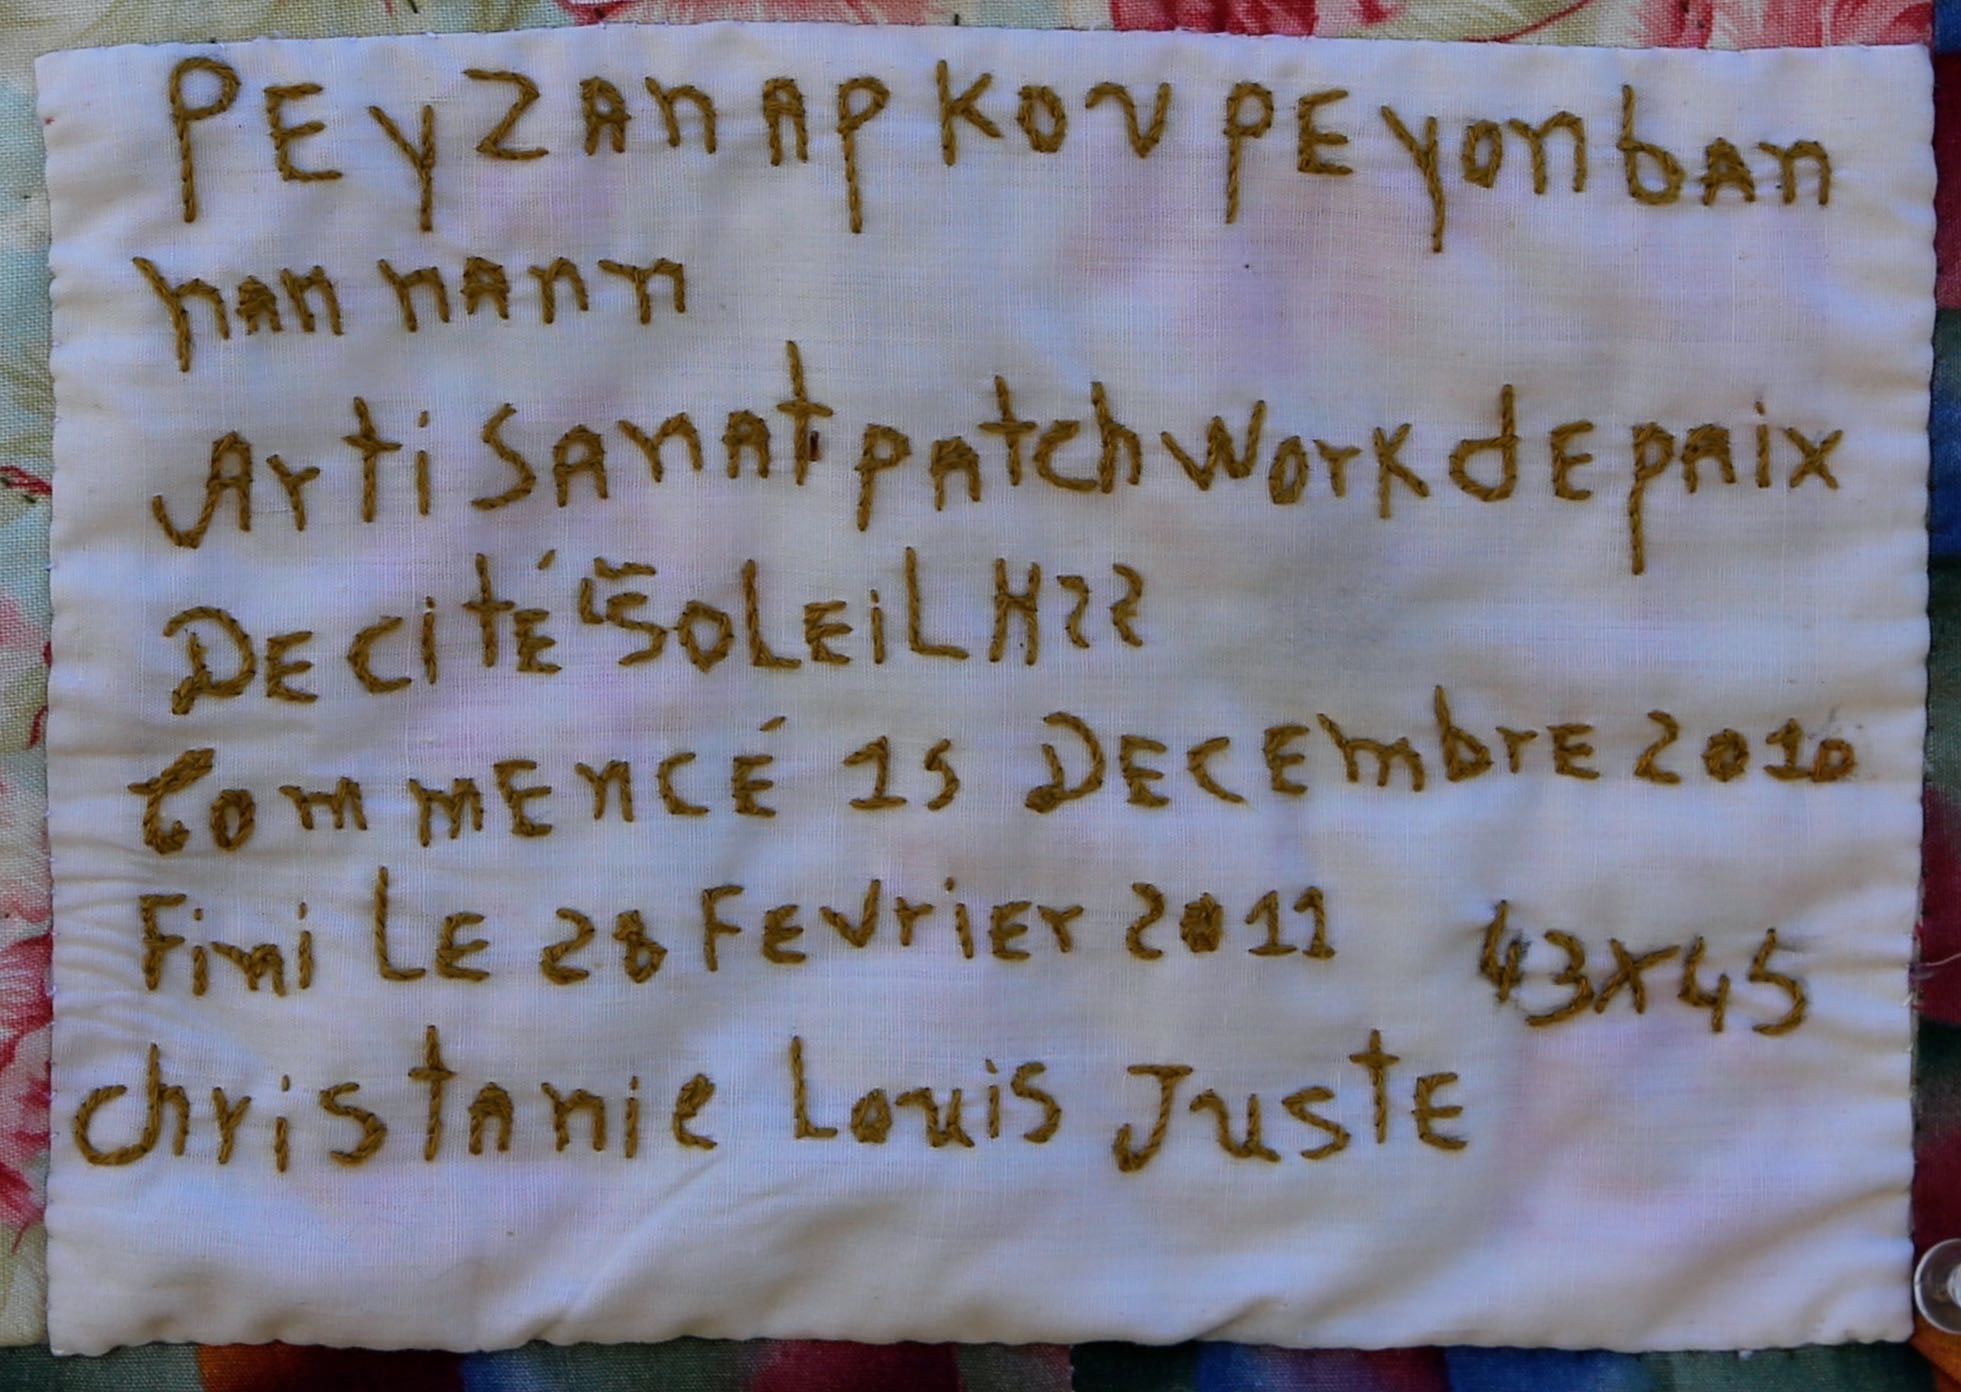 PEyZAn AP KOV PE yon bAn
nan nAnn
ArtiSAnAt pAtchWork dE pAix
DE Cité LESOLEiL H22
CommEnCÉ 15 DECEmbrE 2010
Fini LE 28 FEvriEr 2011 43x45
christAnie Louis JustE